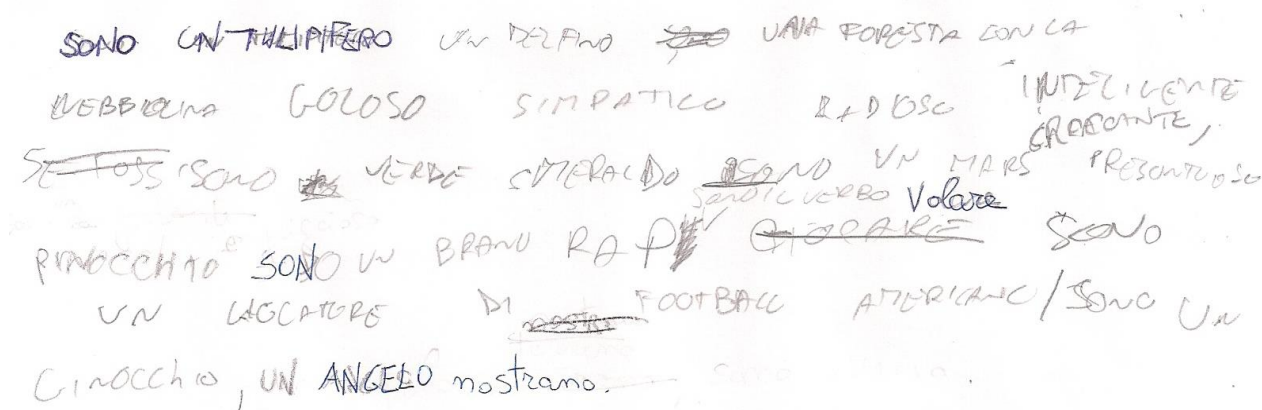 SONO UN TULIPIFERO UN DELFINO UNA FORESTA CON LA
NEBBIOLINA GOLOSO SIMPATICO RADIOSO INTELIGENTE
CREACANTE,
SONO VERDE SMERALDO SONO UN MARS PRESONTUOSO
SONO IL VERBO Volare
PINOCCHIO SONO UN BRANO RAP SONO
UN GIOCATORE DI FOOTBALL AMERICANO/SONO UN
GINOCCHIO, UN ANGELO nostrano.